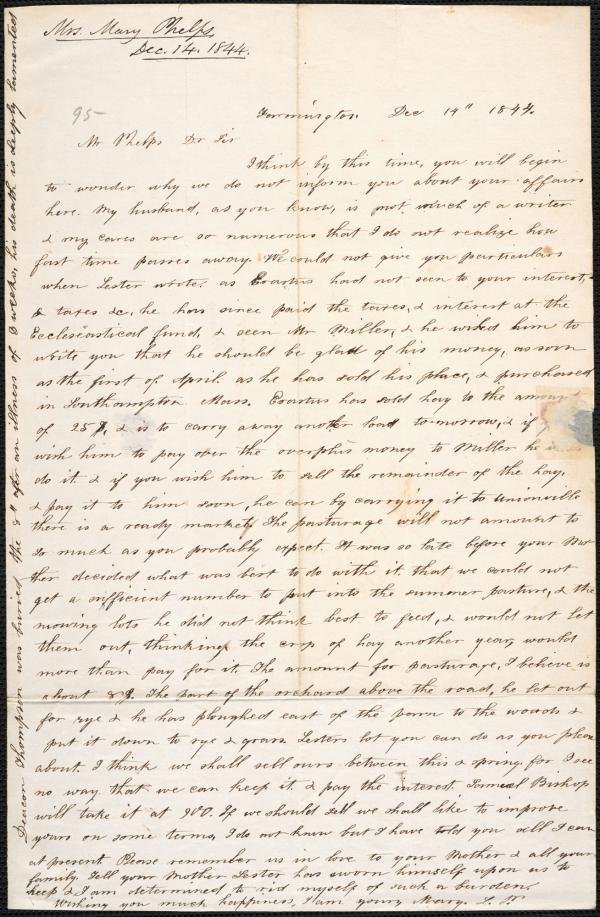 Mrs. Mary Phelps
Dec. 14. 1844.
95-
Farmington Dec 14" 1844.
Mr Phelps Dr Sir
I think by this time, you will begin
to wonder why we do not inform you about your affairs
here. My husband, as you know, is not much of a writer
& my cares are so numerous that I do not realize how
fast time passes away. We could not give you particulars
when Lester wrote. as Erastus had not seen to your interest,
& taxes &c, he has since paid the taxes, & interest at the
Eccleseastical fund, & seen Mr Miller, & he wished him to
write you that he should be glad of his money, as soon
as the first of April as he has sold his place, & purchased
in Southampton Mass. Erastus has sold hay to the amount
of 25$, & is to carry away another load to-morrow, & if
wish him to pay over the overplus money to Miller he
do it. & if you wish him to sell the remainder of the hay,
& pay it to him soon, he can by carrying it to unionville
there is a ready market. The pasturage will not amount to
so much as you probably expect. It was so late before your Mo-
ther decided what was best to do with it. that we could not
get a sufficient number to put into the summer pasture, & the
mowing lots he did not think best to feed, & would not let
them out, thinking the crop of hay another year, would
more than pay for it. The amount for pasturage, I believe is
about 8$. The part of the orchard above the road, he let out
for rye & he has ploughed east of the barn to the woods &
put it down to rye & grass. Lesters lot you can do as you please
about. I think we shall sell ours between this & spring for I see
no way that we can keep it. & pay the interest Bishop
will take it at 900. If we should sell we shall like to improve
yours on some terms, I do not know but I have told you all I can
at present Please remember us in love to your Mother & all your
family. Tell your Mother Lester has sworn himself upon us to
keep & I am determined to rid myself of such a burden.
Wishing you much happiness, I am yours, Mary. L. P
Deacon Thompson was buried the 8" after an illness of 3 weeks, his death is deeply lamented